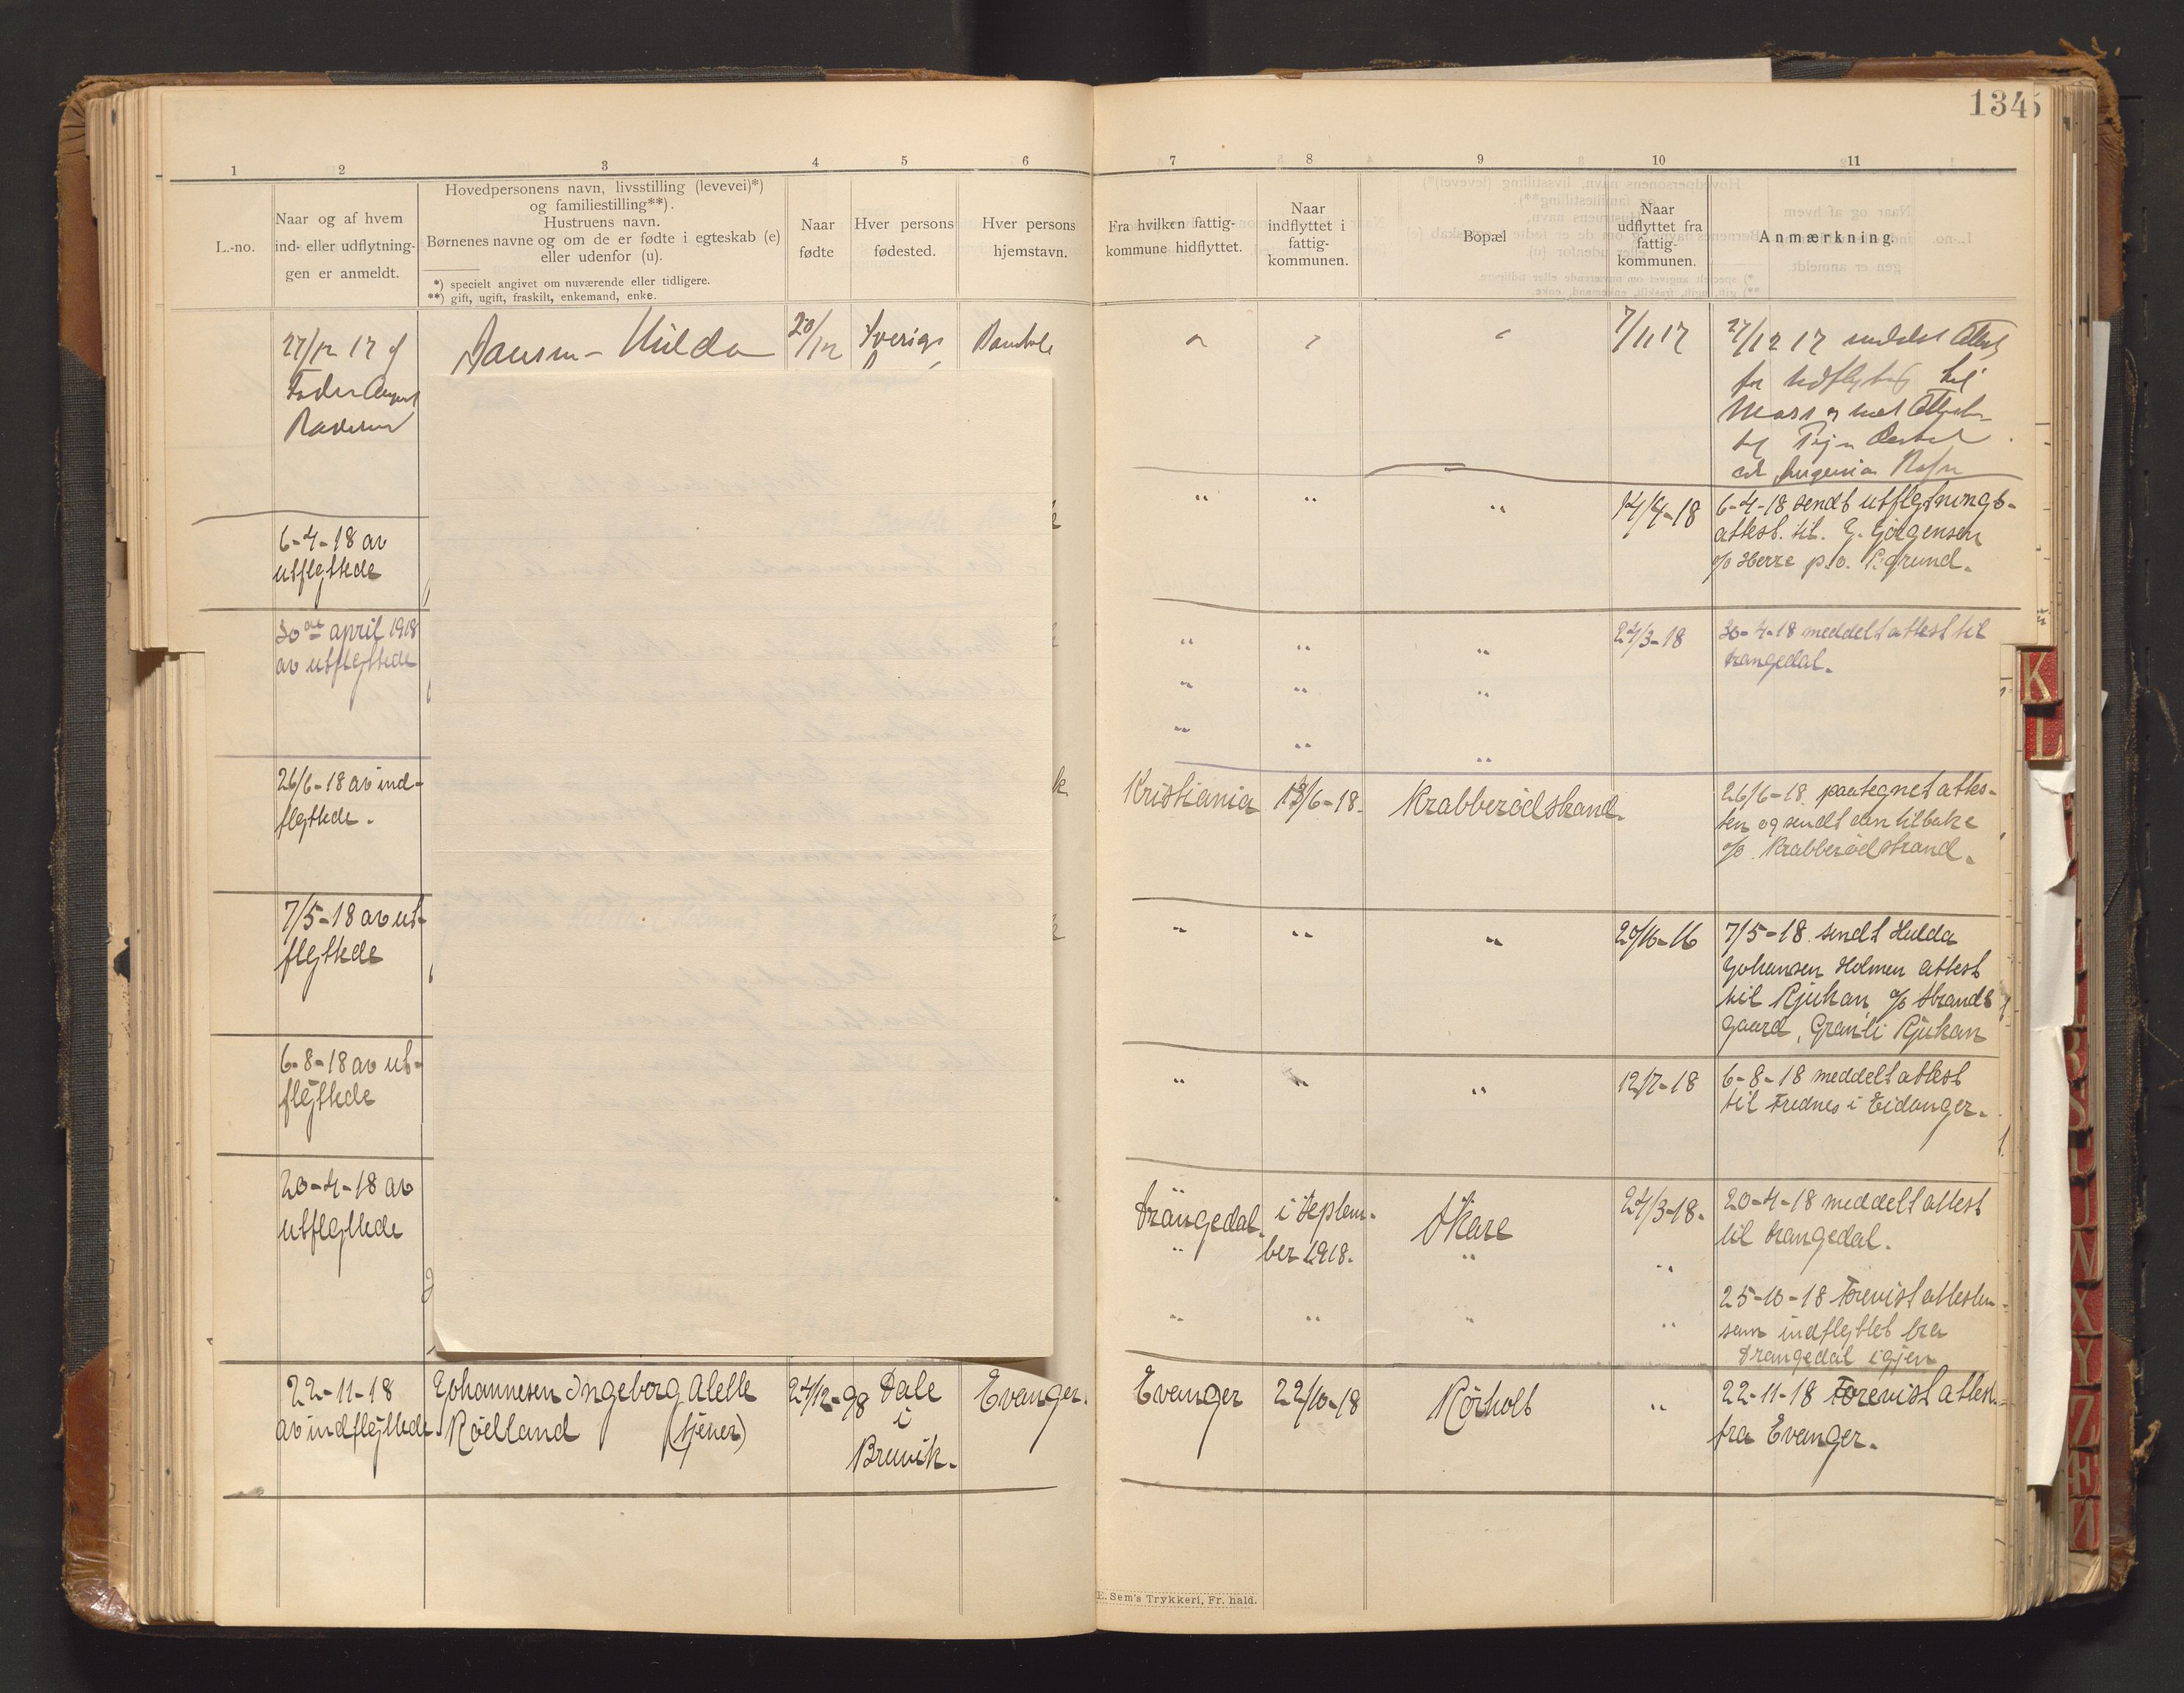 134
1 2 3 4 5 6 7 8 9 10 11
L.-no.
Naar og af hvem
ind- eller udflytnin-
gen er anmeldt.
Hovedpersonens navn, livsstilling (levevei)*)
og familiestilling**).
Hustruens navn.
Børnenes navne og om de er fødte i egteskab (e)
eller udenfor (u).
*) specielt angivet om nuværende eller tidligere.
**) gift, ugift, fraskilt, enkemand, enke.
Naar
fødte
Hver persons
fødested.
Hver persons
hjemstavn.
Fra hvilken fattig-
kommune hidflyttet.
Naar
indflyttet i
fattig-
kommunen.
Bopæl
Naar
udflyttet fra
fattig-
kommunen.
Anmærkning.
27/12 17 af
Hulda
20/12
Sverige
Bamble
7/11 17
27/12 17 meddelt Attest
for Udflytning til
Moss og
6-4-18 av
utflyttede
" " "
14/4-18
6-4-18 sendt utflytnings-
attest. til. E. Jörgensen
c/o Herre p.o. P.grund.
30te april 1918
av utflyttede
" " "
24/3-18
30-4-18 meddelt attest til
Drangedal.
" " "
" " "
26/6-18 av ind-
flyttede.
Kristiania
13/6-18.
Krabberödstrand.
26/6-18. paategnet attes-
ten og sendt den tilbake
c/o. Krabberödstrand.
7/5-18 av ut-
flyttede
" " "
20/10-16
7/5-18. sendt Hulda
Johansen Holmen attest
til Rjukan, c/o Strands
gaard, Granli Rjukan
6-8-18 av ut-
flyttede
" " "
12/7-18
6-8-18 meddelt attest
til Frednes i Eidanger.
20-4-18 av
utflyttede
Drangedal.
i Septem-
ber 1918.
Skare
24/3-18.
20-4-18 meddelt attest
til Drangedal.
" " "
25-10-18 Forevist attesten
som indflyttet fra
Drangedal igjen
" " " "
22-11-18
av indflyttede.
Johannesen Ingeborg Alette
Röelland (tjener)
24/12-98
Dale
i
Bruvik.
Evanger.
Evanger
22/10-18
Rörholt
"
22-11-18 Forevist attest
fra Evanger.
E. Sem's Trykkeri, Fr. hald.
K
L
R
S
T
U
N
X
Y
Z
Æ